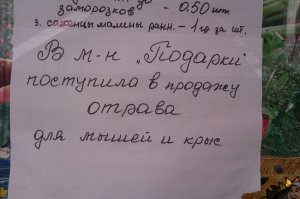 до
заморозков - 0.50 шт.
з. саженцы малины ранн. - 1 гр за шт.
В м-н „Подарки"
поступила в продажу
отрава
для мышей и крыс